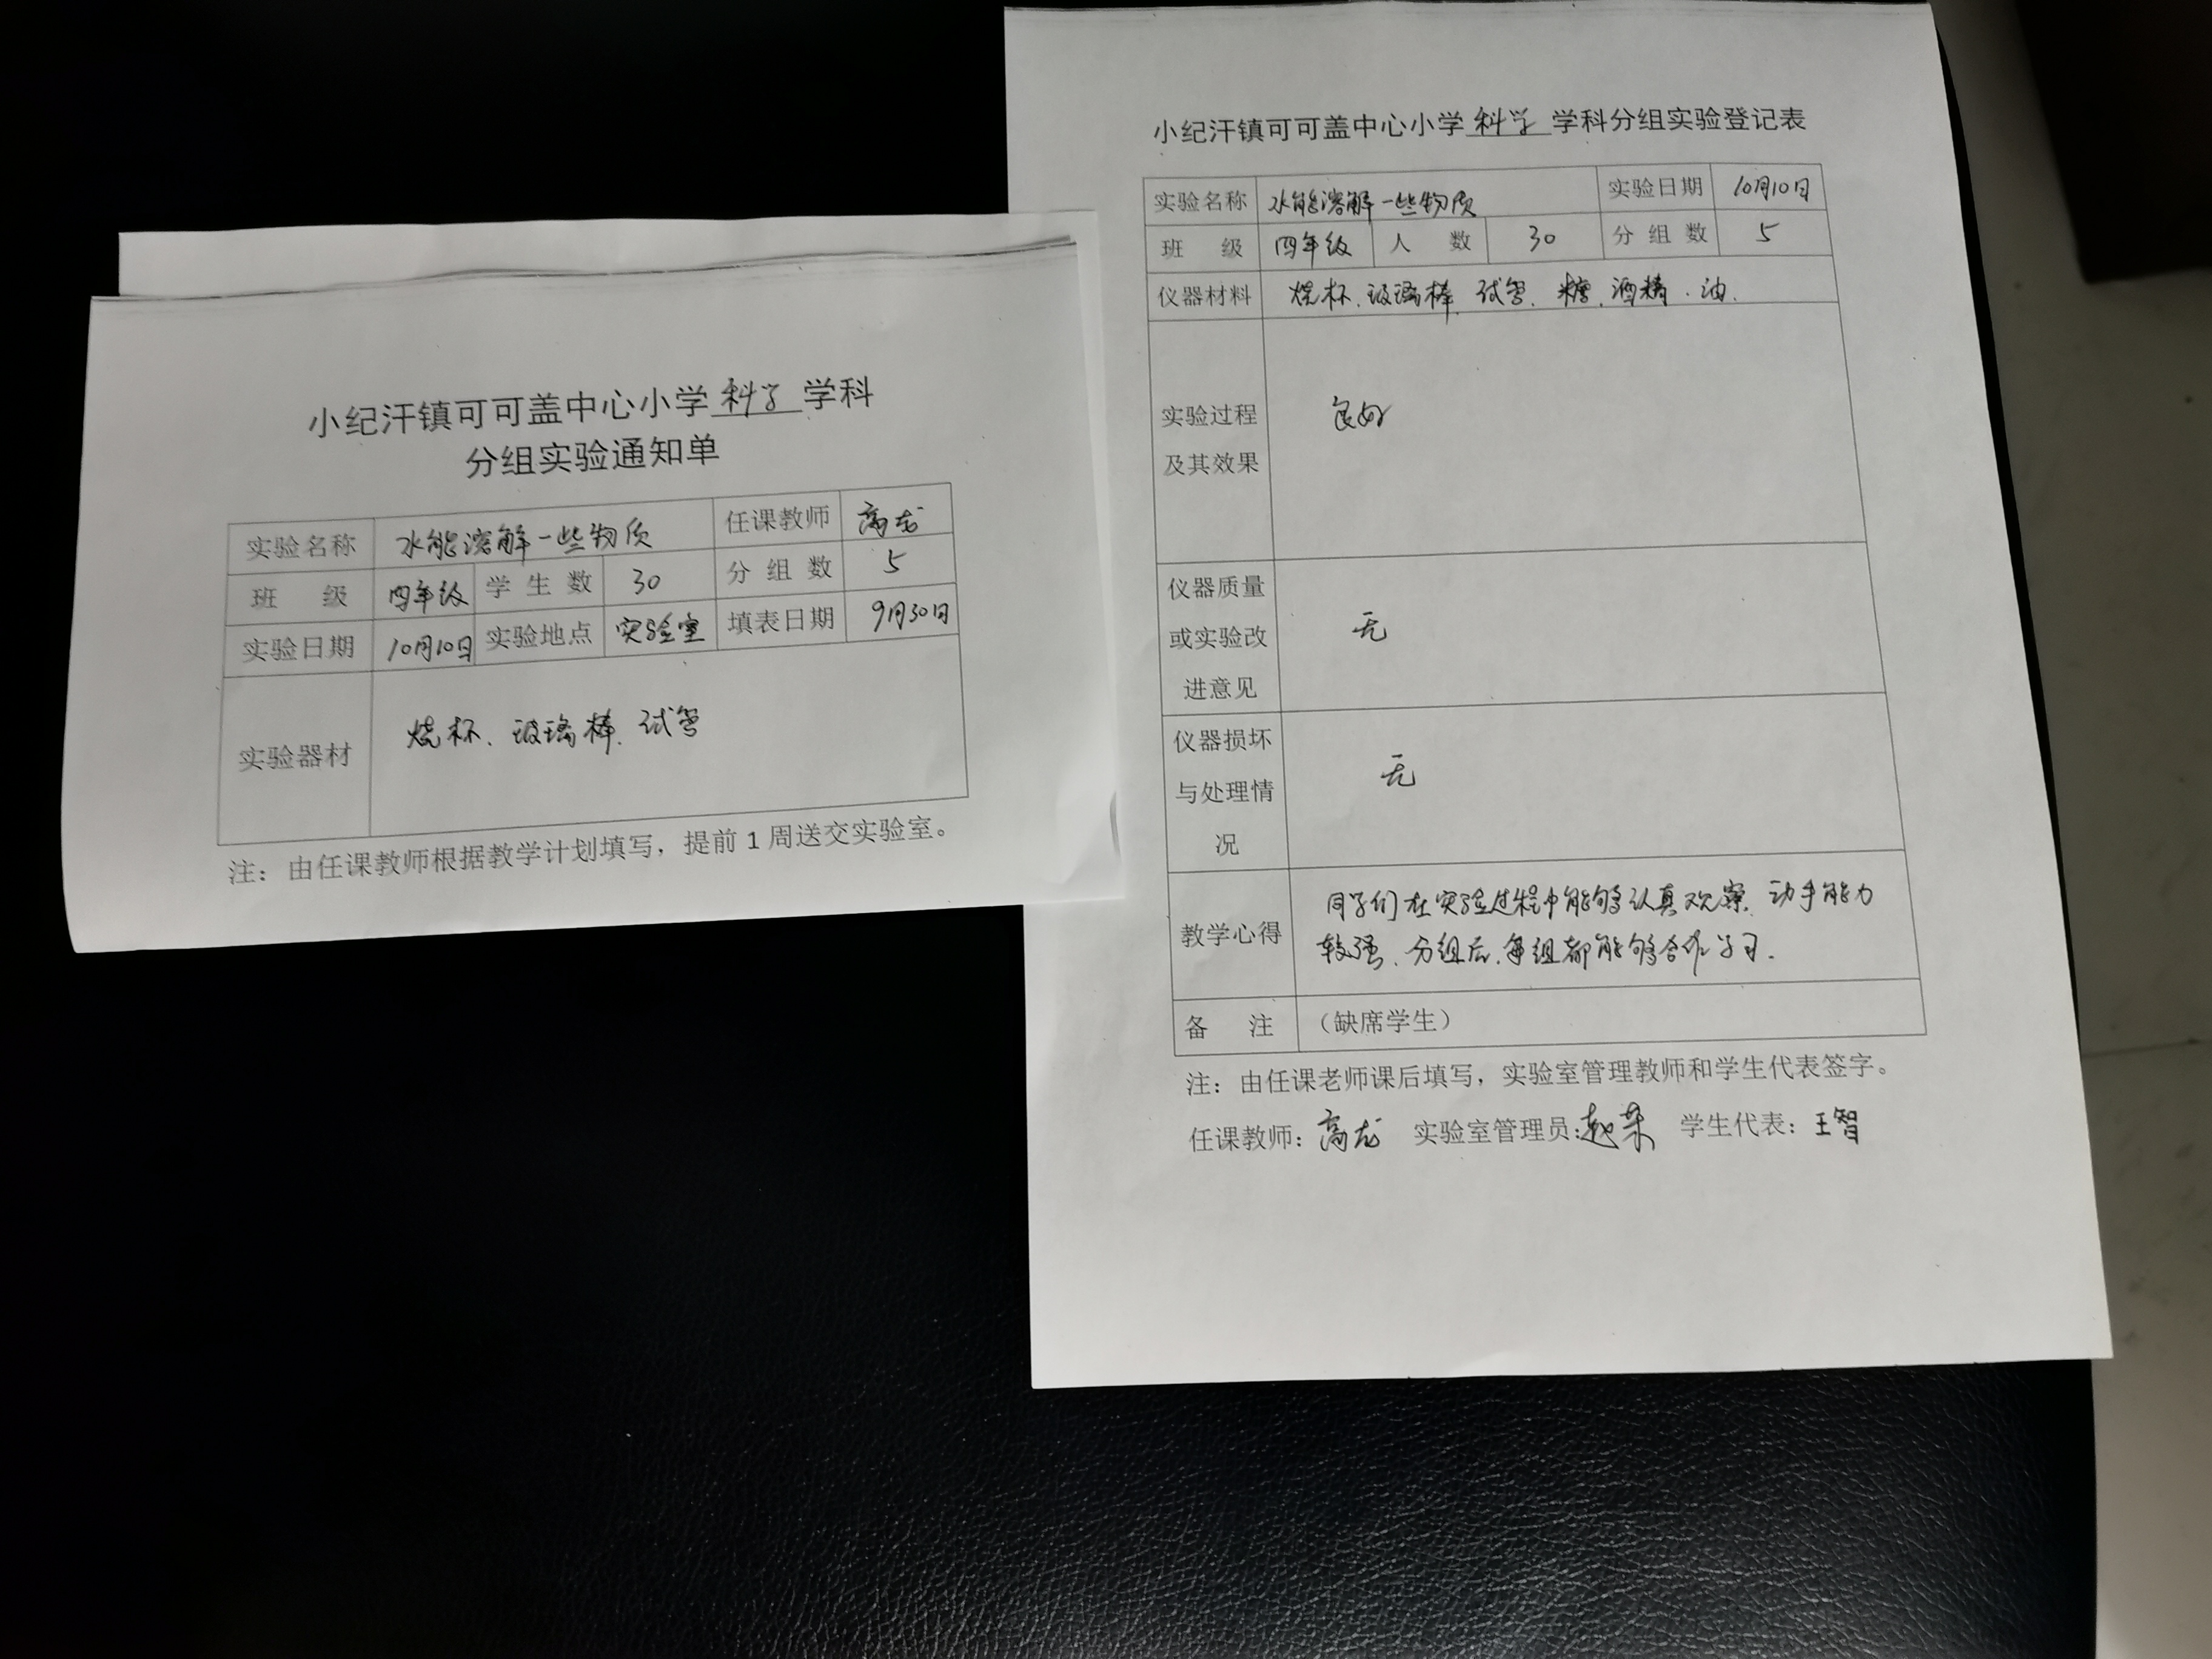 小纪汗镇可可盖中心小学科学学科
分组实验通知单
实验名称 水能溶解一些物质 任课教师 高龙
班 级 四年级 学生数 30 分组数 5
实验日期 10月10日 实验地点 实验室 填表日期 9月30日
实验器材 烧杯、玻璃棒、试管
注：由任课教师根据教学计划填写，提前1周送交实验室。
小纪汗镇可可盖中心小学科学学科分组实验登记表
实验名称 水能溶解一些物质 实验日期 10月10日
班 级 四年级 人 数 30 分组数 5
仪器材料 烧杯、玻璃棒、试管、糖、酒精、油.
实验过程
及其效果
良好
仪器质量
或实验改
进意见
无
仪器损坏
与处理情
况
无
教学心得
同学们在实验过程中能够认真观察、动手能力
较强、分组后、每组都能够合作学习.
备 注 （缺席学生）
注：由任课老师课后填写，实验室管理教师和学生代表签字。
任课教师：高龙 实验室管理员：赵荣 学生代表：王智